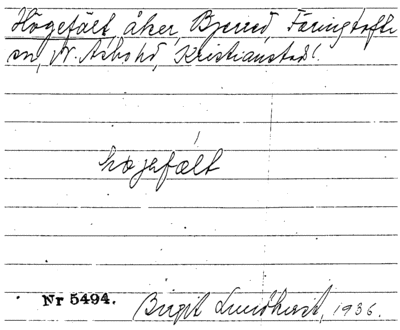 Högefält, åker, Bjerred, Färingtofta
sn, N. Åsbo hd, Kristianstad l.
högefält
Nr 5494.
Birgit Lundkvist, 1936.